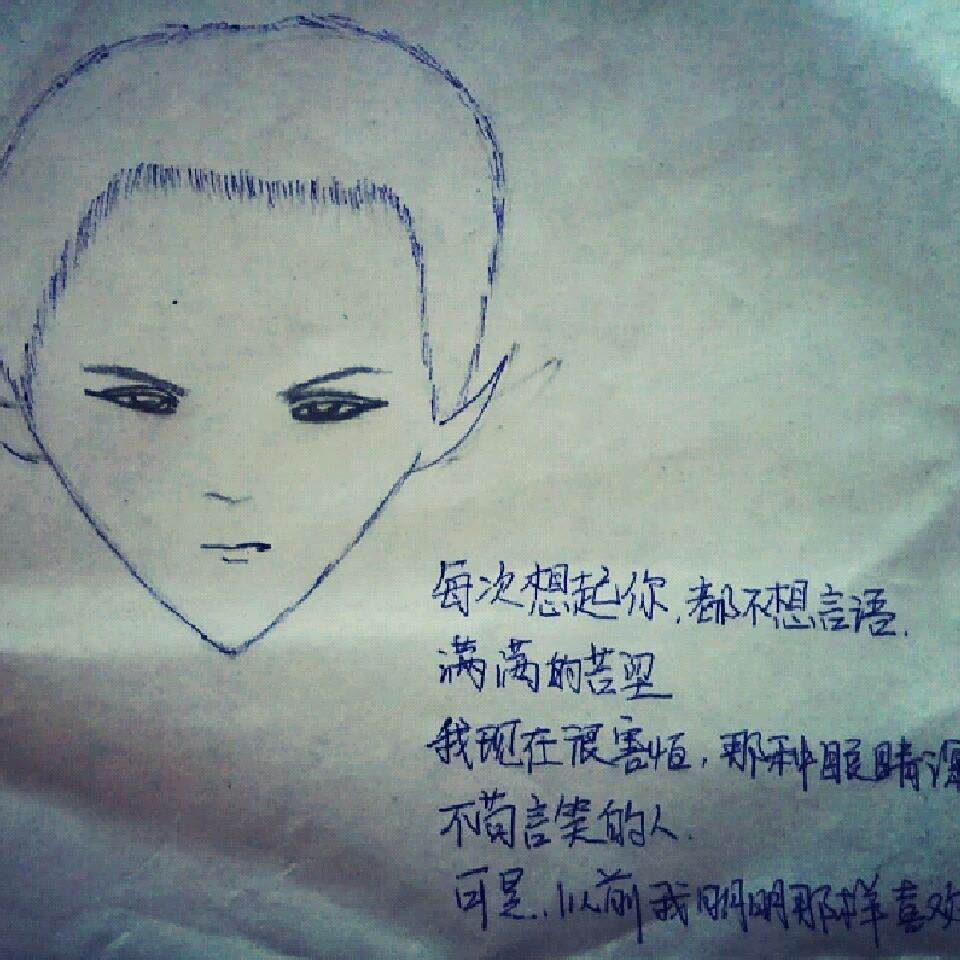 每次想起你,都不想言语.
满满的苦涩
我现在很害怕,那种眼睛深
不苟言笑的人.
可是..以前我明明那样喜欢